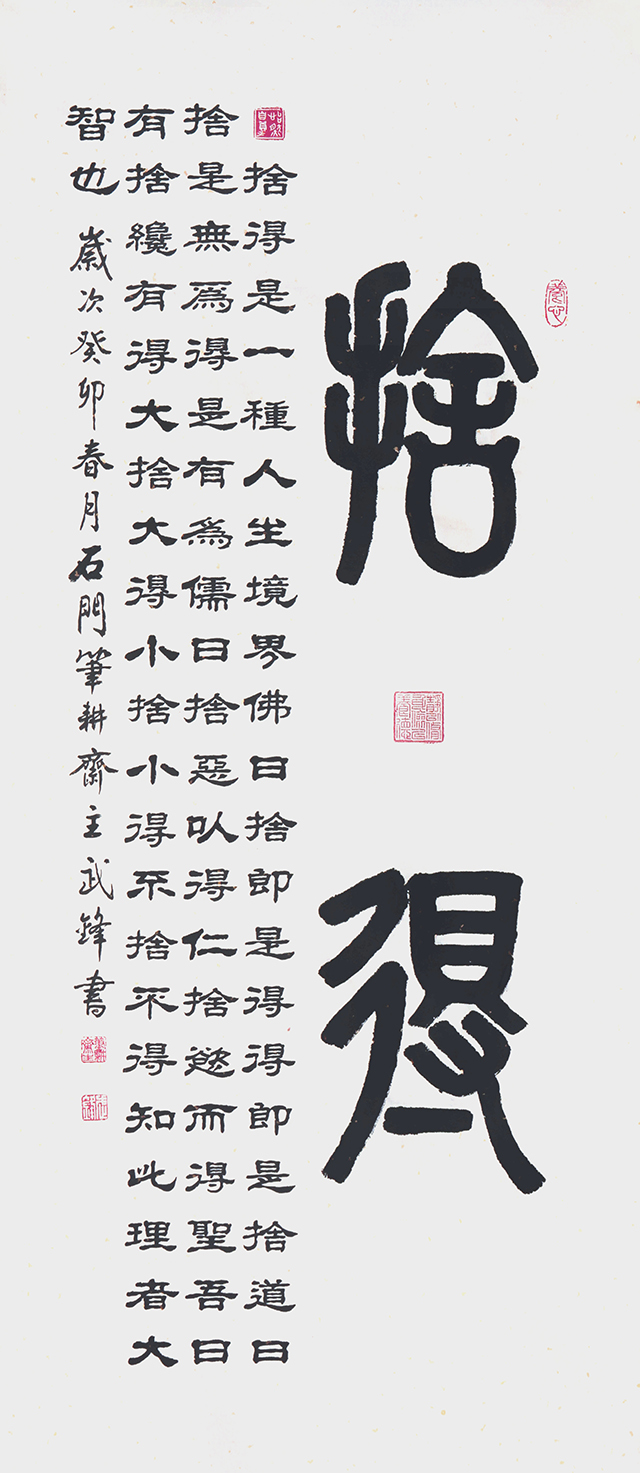 捨得
捨得是一種人生境界佛曰捨即是得得即是捨道曰
捨是無爲得是有爲儒曰捨惡以得仁捨慾而得聖吾曰
有捨纔有得大捨大得小捨小得不捨不得知此理者大
智也
歲次癸卯春月石門筆耕齋主武鋒書